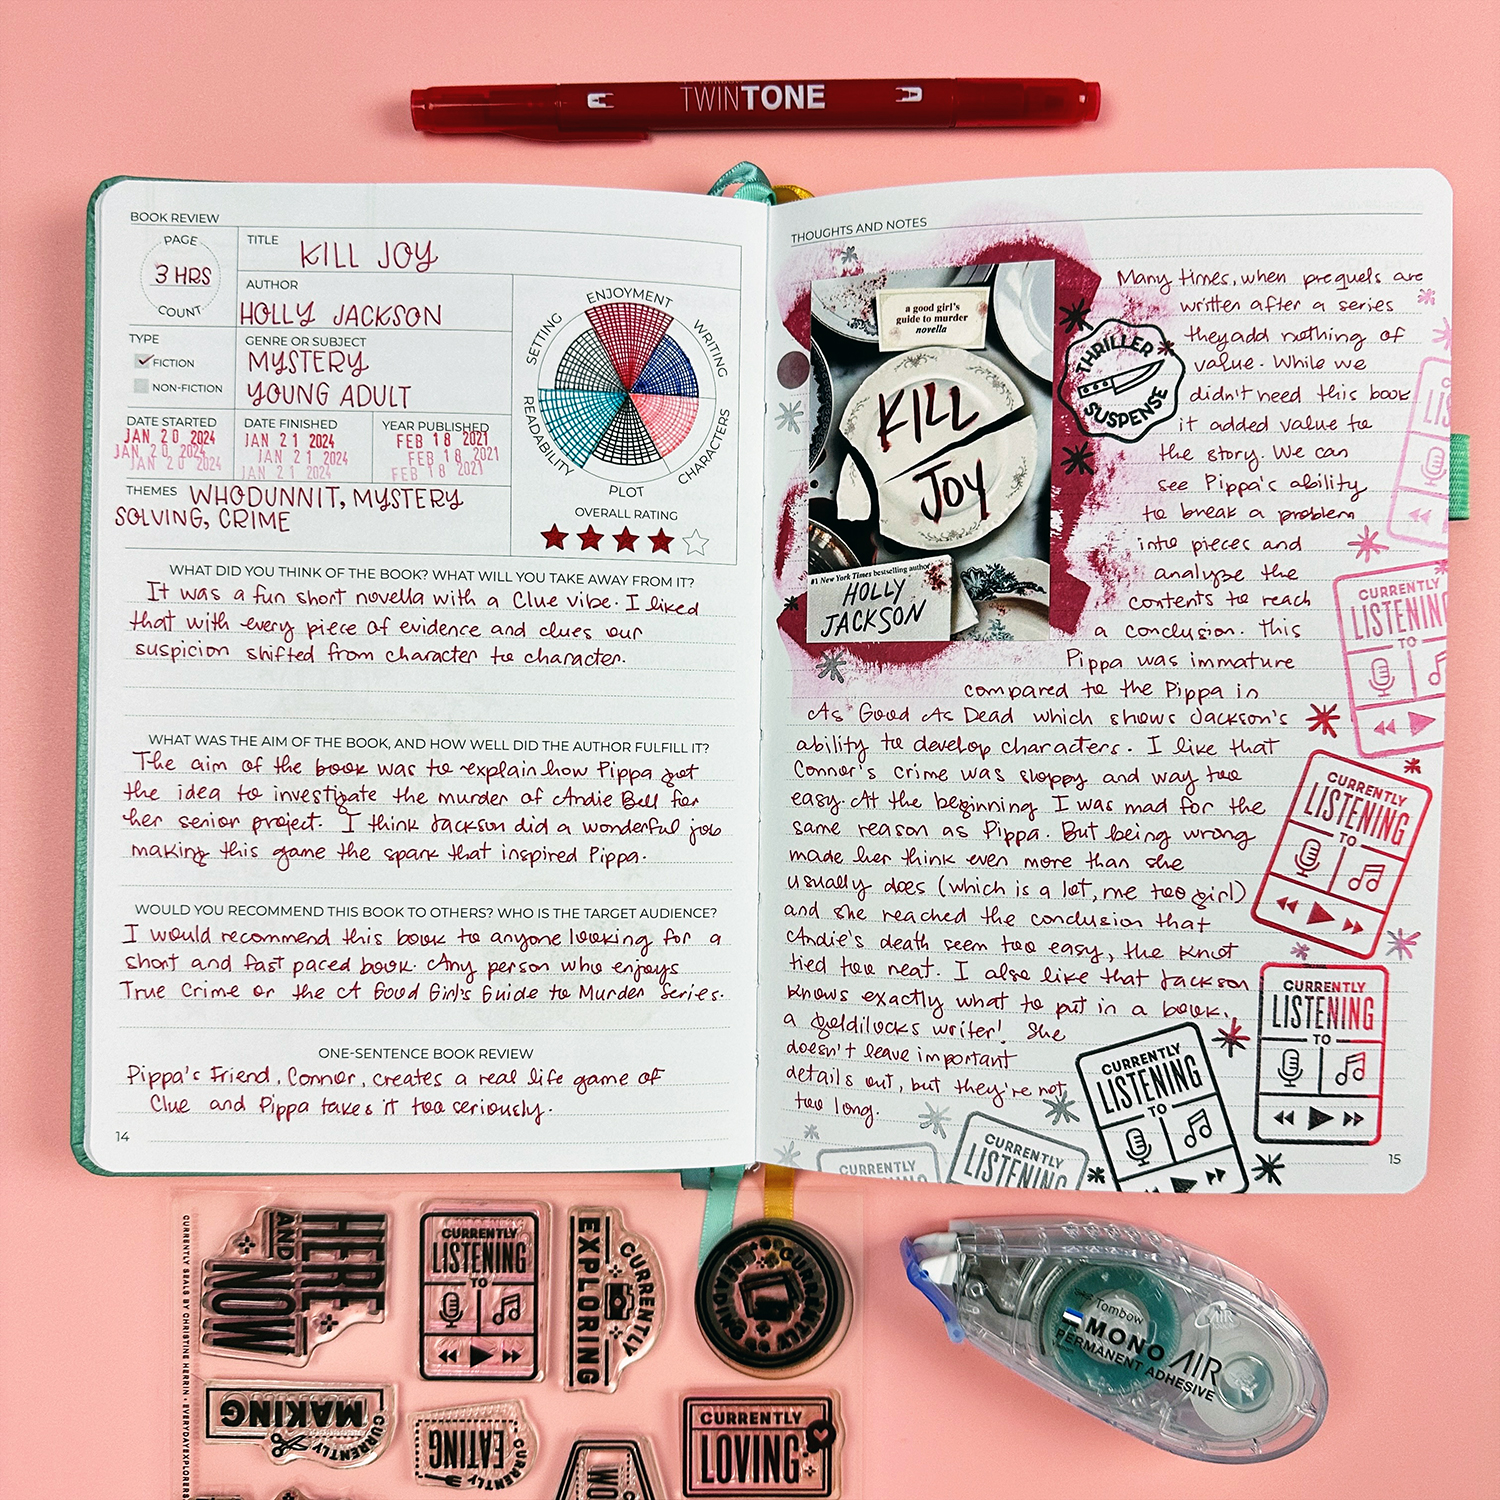 TWINTONE
BOOK REVIEW
PAGE
3 HRS
COUNT
TITLE
KILL JOY
AUTHOR
HOLLY JACKSON
TYPE
FICTION
NON-FICTION
GENRE OR SUBJECT
MYSTERY
YOUNG ADULT
DATE STARTED
JAN 20 2024
JAN 20 2024
JAN 20 2024
DATE FINISHED
JAN 21 2024
JAN 21 2024
JAN 21 2024
YEAR PUBLISHED
FEB 18 2021
FEB 18 2021
FEB 18 2021
THEMES WHODUNNIT, MYSTERY
SOLVING, CRIME
ENJOYMENT
WRITING
CHARACTERS
PLOT
READABILITY
SETTING
OVERALL RATING
WHAT DID YOU THINK OF THE BOOK? WHAT WILL YOU TAKE AWAY FROM IT?
It was a fun short novella with a Clue vibe. I liked
that with every piece of evidence and clues our
suspicion shifted from character to character.
WHAT WAS THE AIM OF THE BOOK, AND HOW WELL DID THE AUTHOR FULFILL IT?
The aim of the book was to explain how Pippa got
the idea to investigate the murder of Andie Bell for
her senior project. I think Jackson did a wonderful job
making this game the spark that inspired Pippa.
WOULD YOU RECOMMEND THIS BOOK TO OTHERS? WHO IS THE TARGET AUDIENCE?
I would recommend this book to anyone looking for a
short and fast paced book. Any person who enjoys
True Crime or the A Good Girl's Guide to Murder Series.
ONE-SENTENCE BOOK REVIEW
Pippa's Friend, Connor, creates a real life game of
Clue and Pippa takes it too seriously.
14
THOUGHTS AND NOTES
a good girl's
guide to murder
novella
KILL
JOY
#1 New York Times bestselling author
HOLLY
JACKSON
THRILLER
SUSPENSE
Many times, when prequels are
written after a series
they add nothing of
value. While we
didn't need this book
it added value to
the story. We can
see Pippa's ability
to break a problem
into pieces and
analyze the
contents to reach
a conclusion. This
Pippa was immature
compared to the Pippa in
As Good As Dead which shows Jackson's
ability to develop characters. I like that
Connor's crime was sloppy and way too
easy. At the beginning I was mad for the
same reason as Pippa. But being wrong
made her think even more than she
usually does (which is a lot, me too girl)
and she reached the conclusion that
Andie's death seem too easy, the knot
tied too neat. I also like that Jackson
knows exactly what to put in a book,
a goldilocks writer! She
doesn't leave important
details out, but they're not
too long.
LIS
CURRENTLY
LISTENING
TO
CURRENTLY
LISTENING
TO
CURRENTLY
LISTENING
TO
CURRENTLY
LISTENING
TO
CURRENTLY
LISTENING
CURRENTLY
15
CURRENTLY SEALS BY CHRISTINE HERRIN • EVERYDAYEXPLORERS
HERE
AND
NOW
CURRENTLY
LISTENING
TO
CURRENTLY
EXPLORING
CURRENTLY
READING
CURRENTLY
MAKING
CURRENTLY
EATING
CURRENTLY
LOVING
Tombow
MONO AIR
PERMANENT ADHESIVE